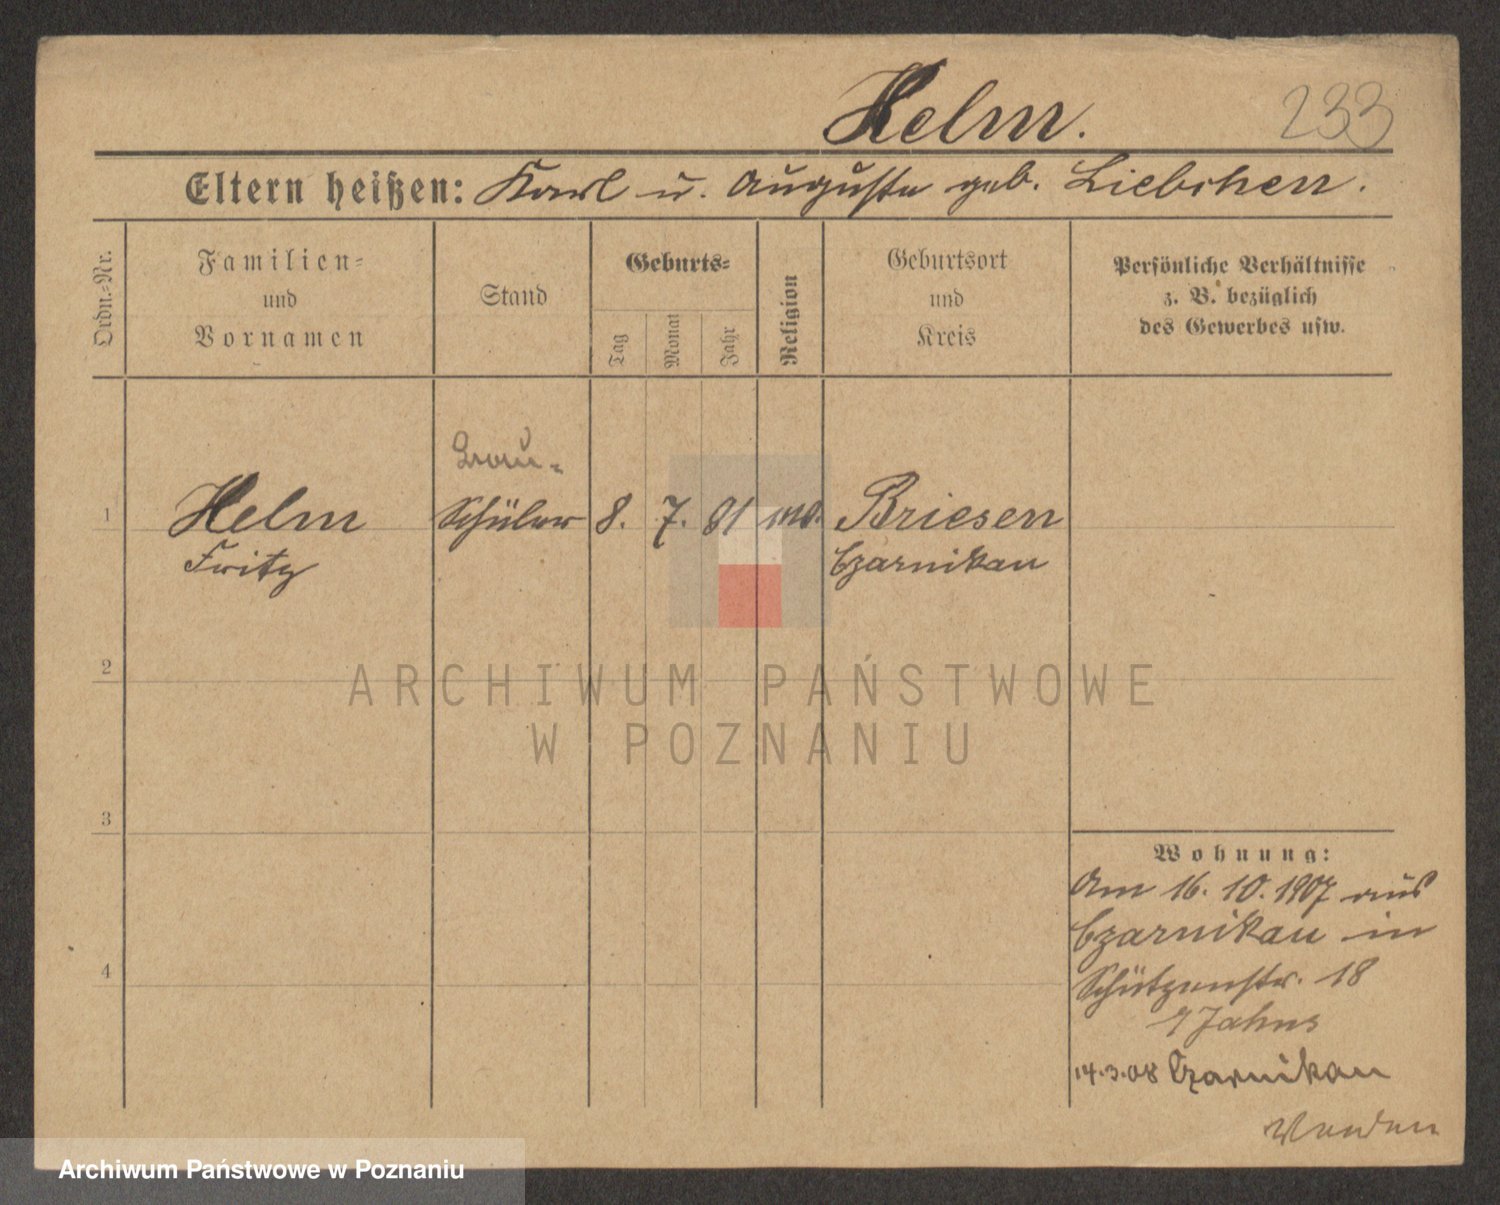 Helm.
233
Eltern heißen: Karl u. Auguste geb. Liebchen.
Ordn.-Nr.
Familien-
und
Vornamen
Stand
Geburts-
Tag
Monat
Jahr
Religion
Geburtsort
und
Kreis
Persönliche Verhältnisse
z. B. bezüglich
des Gewerbes usw.
Bau-
1 Helm Schüler 8. 7. 81 Briesen
Fritz Czarnikau
2
ARCHIWUM PAŃSTWOWE
W POZNANIU
3
Wohnung:
Am 16. 10. 1907 aus
Czarnikau in
Schützenstr. 18
Jahns
4
14.3.08 Czarnikau
Archiwum Państwowe w Poznaniu